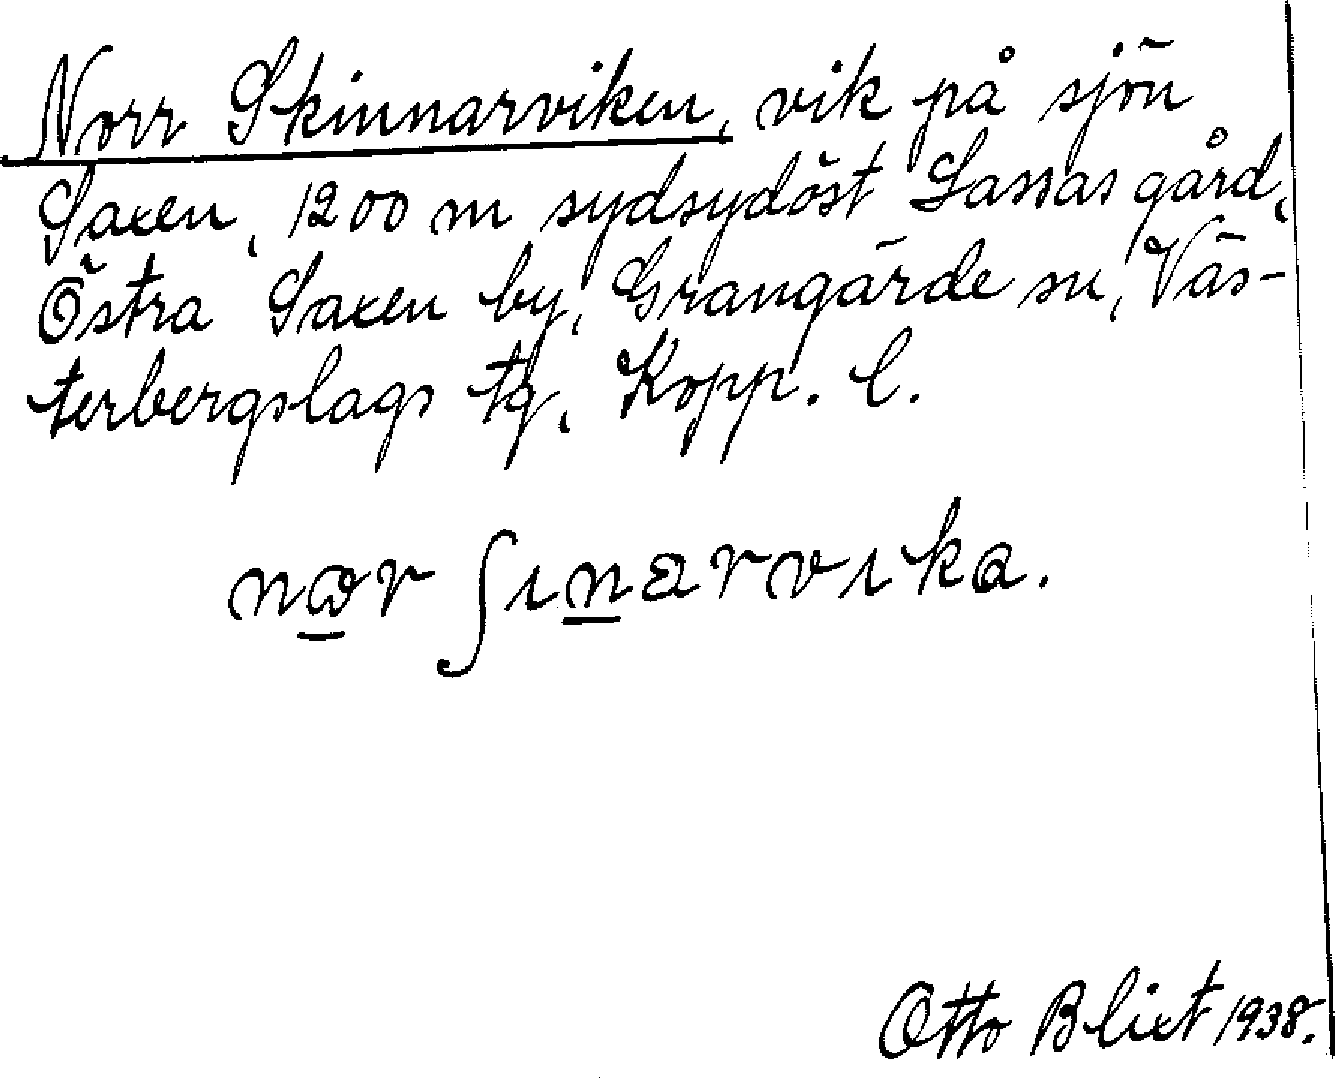 Norr Skinnarviken, vik på sjön
Saxen, 1200 m sydsydöst Lassas gård,
Östra Saxen by, Grangärde sn, Väs-
terbergslags tg, Kopp. l.
nɷr ʃınarvıka.
Otto Blixt 1938.